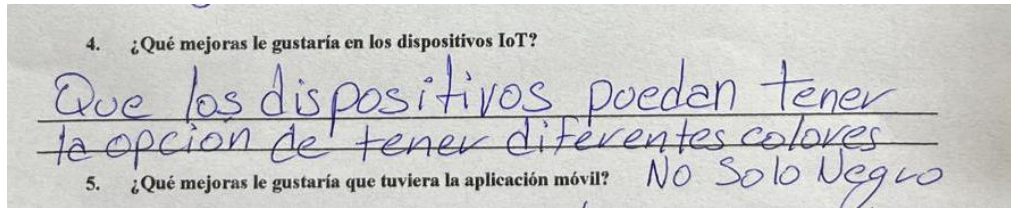 4. ¿Qué mejoras le gustaría en los dispositivos IoT?
Que los dispositivos puedan tener
la opción de tener diferentes colores
No Solo Negro
5. ¿Qué mejoras le gustaría que tuviera la aplicación móvil?